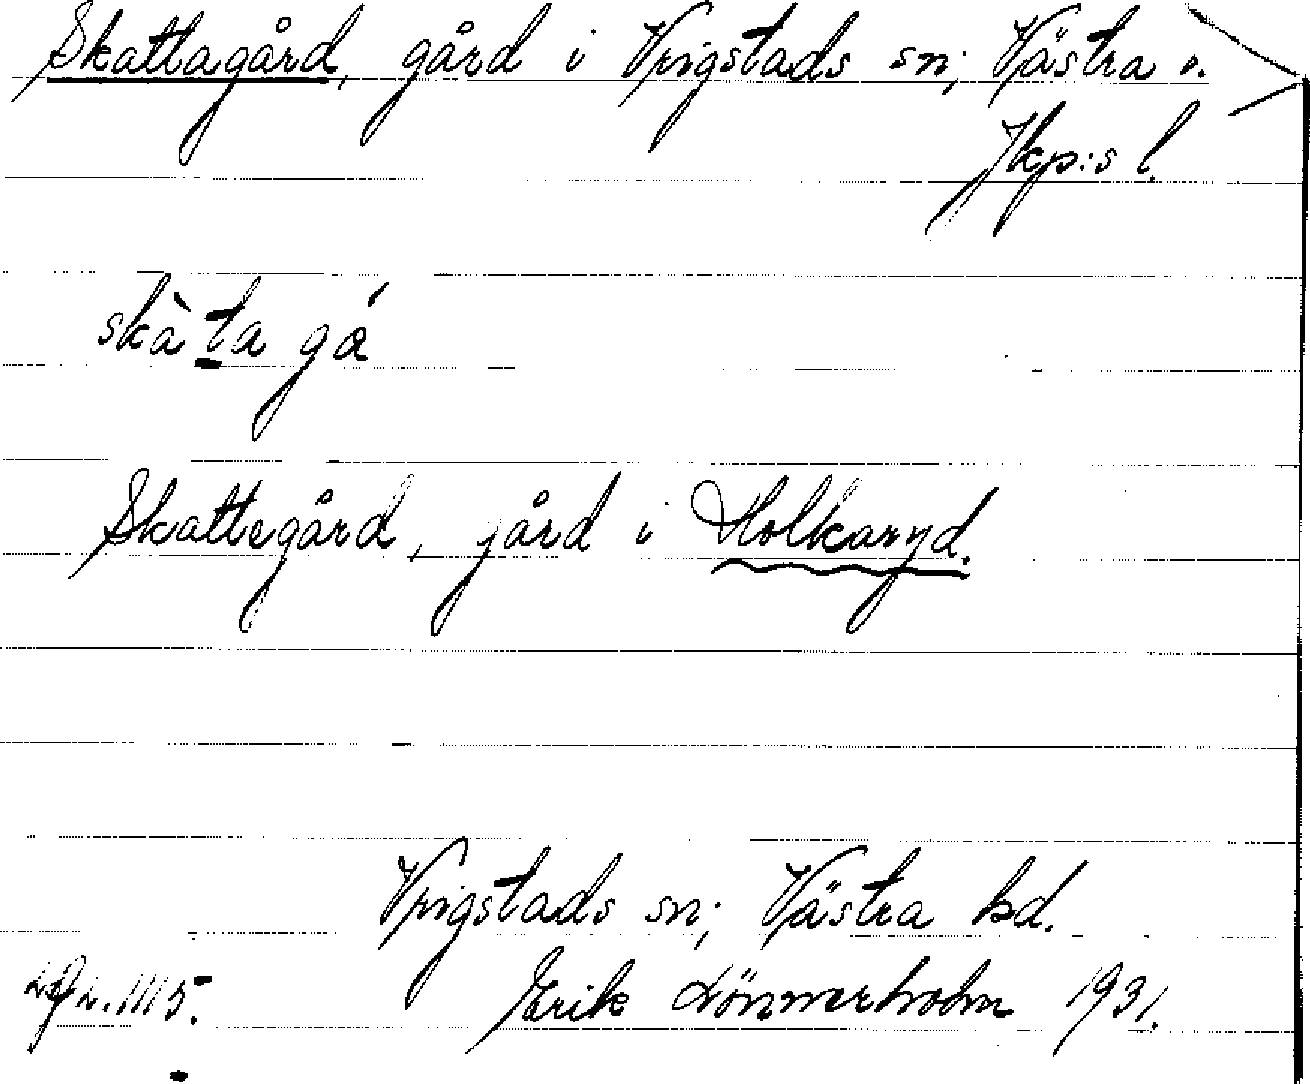 Skattagård, gård i Vrigstads sn; Västra
Jkp:s l.
skàta gá
Skattegård, gård i Holkaryd.
Vrigstads sn; Västra hd.
Erik Lönnerholm 1931.